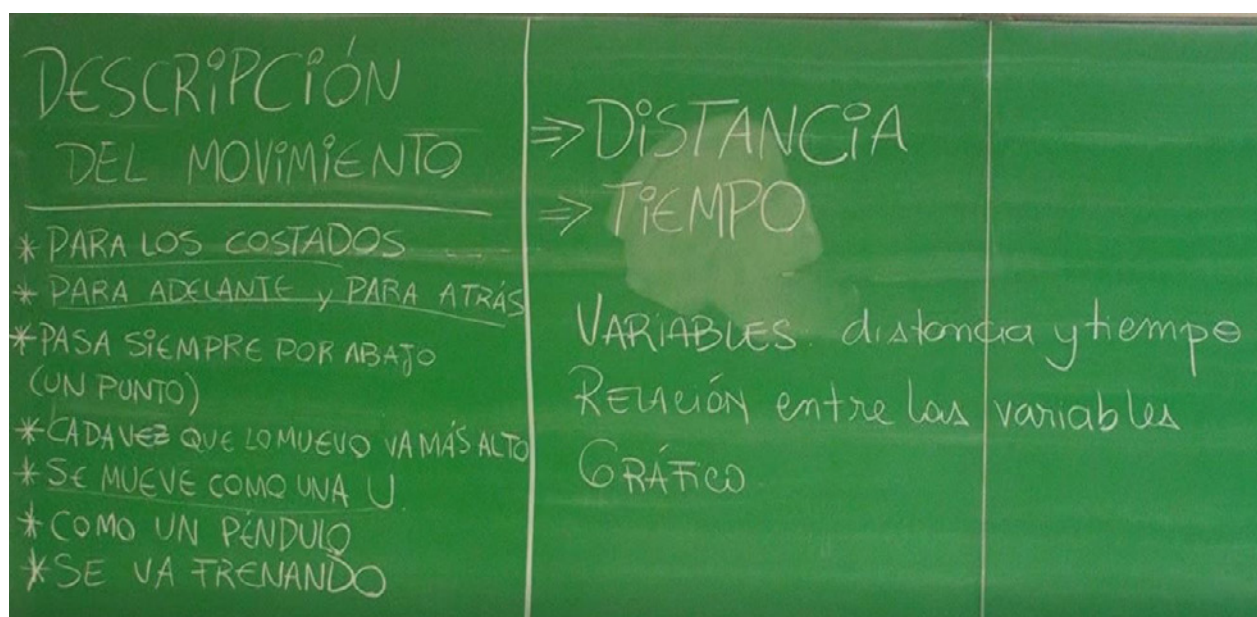 DESCRIPCIÓN
DEL MOVIMIENTO
* PARA LOS COSTADOS
* PARA ADELANTE y PARA ATRÁS
* PASA SIEMPRE POR ABAJO
(UN PUNTO)
* CADA VEZ QUE LO MUEVO VA MÁS ALTO
* SE MUEVE COMO UNA U.
* COMO UN PÉNDULO
* SE VA FRENANDO
⇒ DISTANCIA
⇒ TIEMPO
VARIABLES: distancia y tiempo
RELACIÓN entre las variables
GRÁFICO